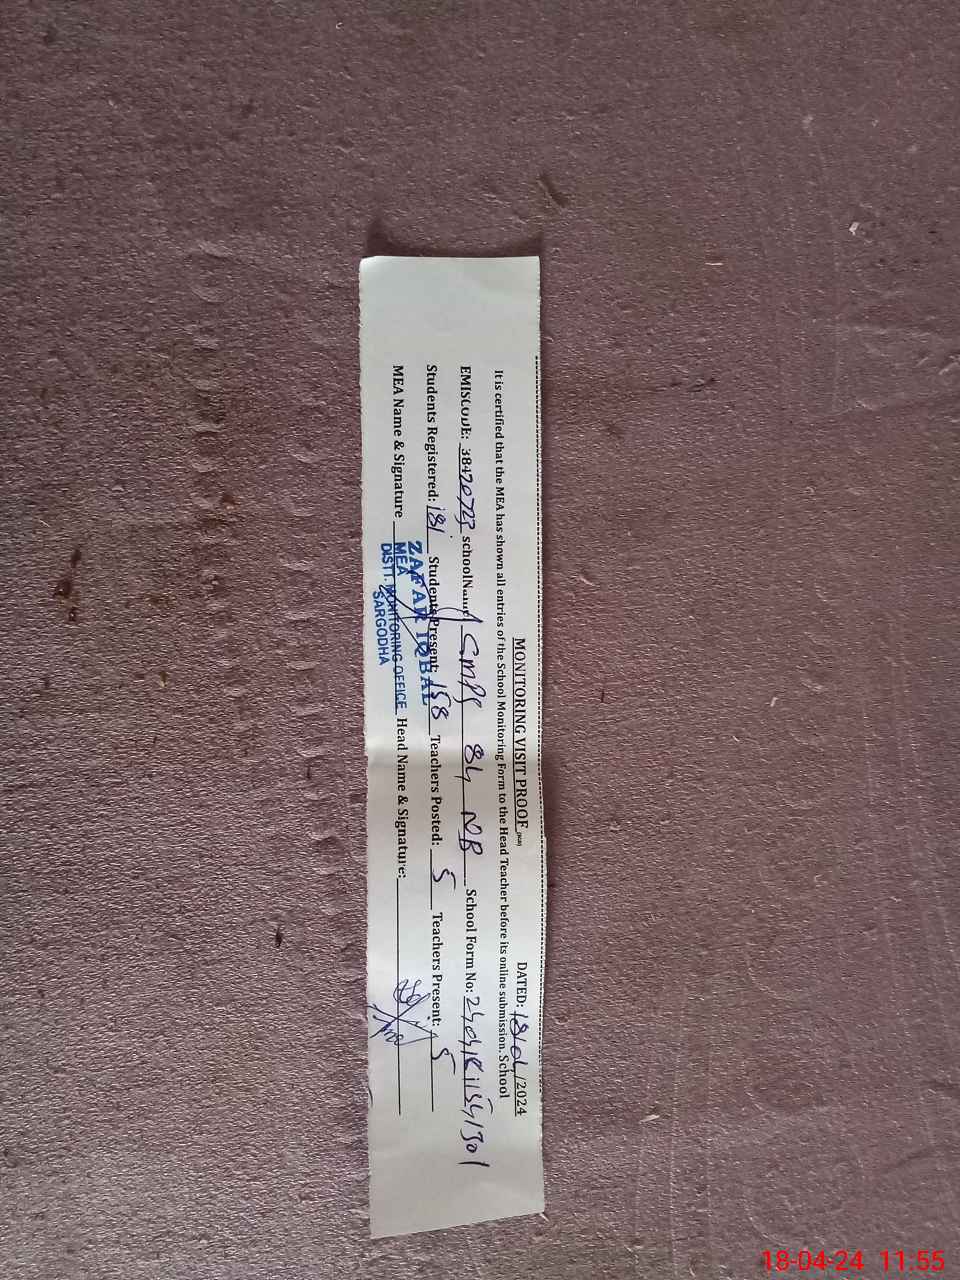 MONITORING VISIT PROOF
DATED: 18/04/2024
It is certified that the MEA has shown all entries of the School Monitoring Form to the Head Teacher before its online submission. School
EMISCODE: 38420723 schoolName GMPS 84 NB School Form No:
Students Registered: 181 Students Present: 158 Teachers Posted: 5 Teachers Present: 5
MEA Name & Signature Head Name & Signature:
ZAFAR IQBAL
MEA
DISTT. MONITORING OFFICE
SARGODHA
18-04-24 11:55